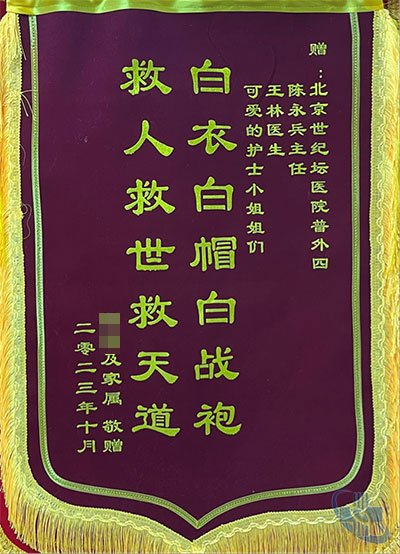 赠：北京世纪坛医院普外四
陈永兵主任
王林医生
可爱的护士小姐姐们
白衣白帽白战袍
救人救世救天道
及家属 敬赠
二零二三年十月